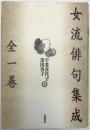 女流俳句集成
全一巻
宇多喜代子
黒田杏子
編